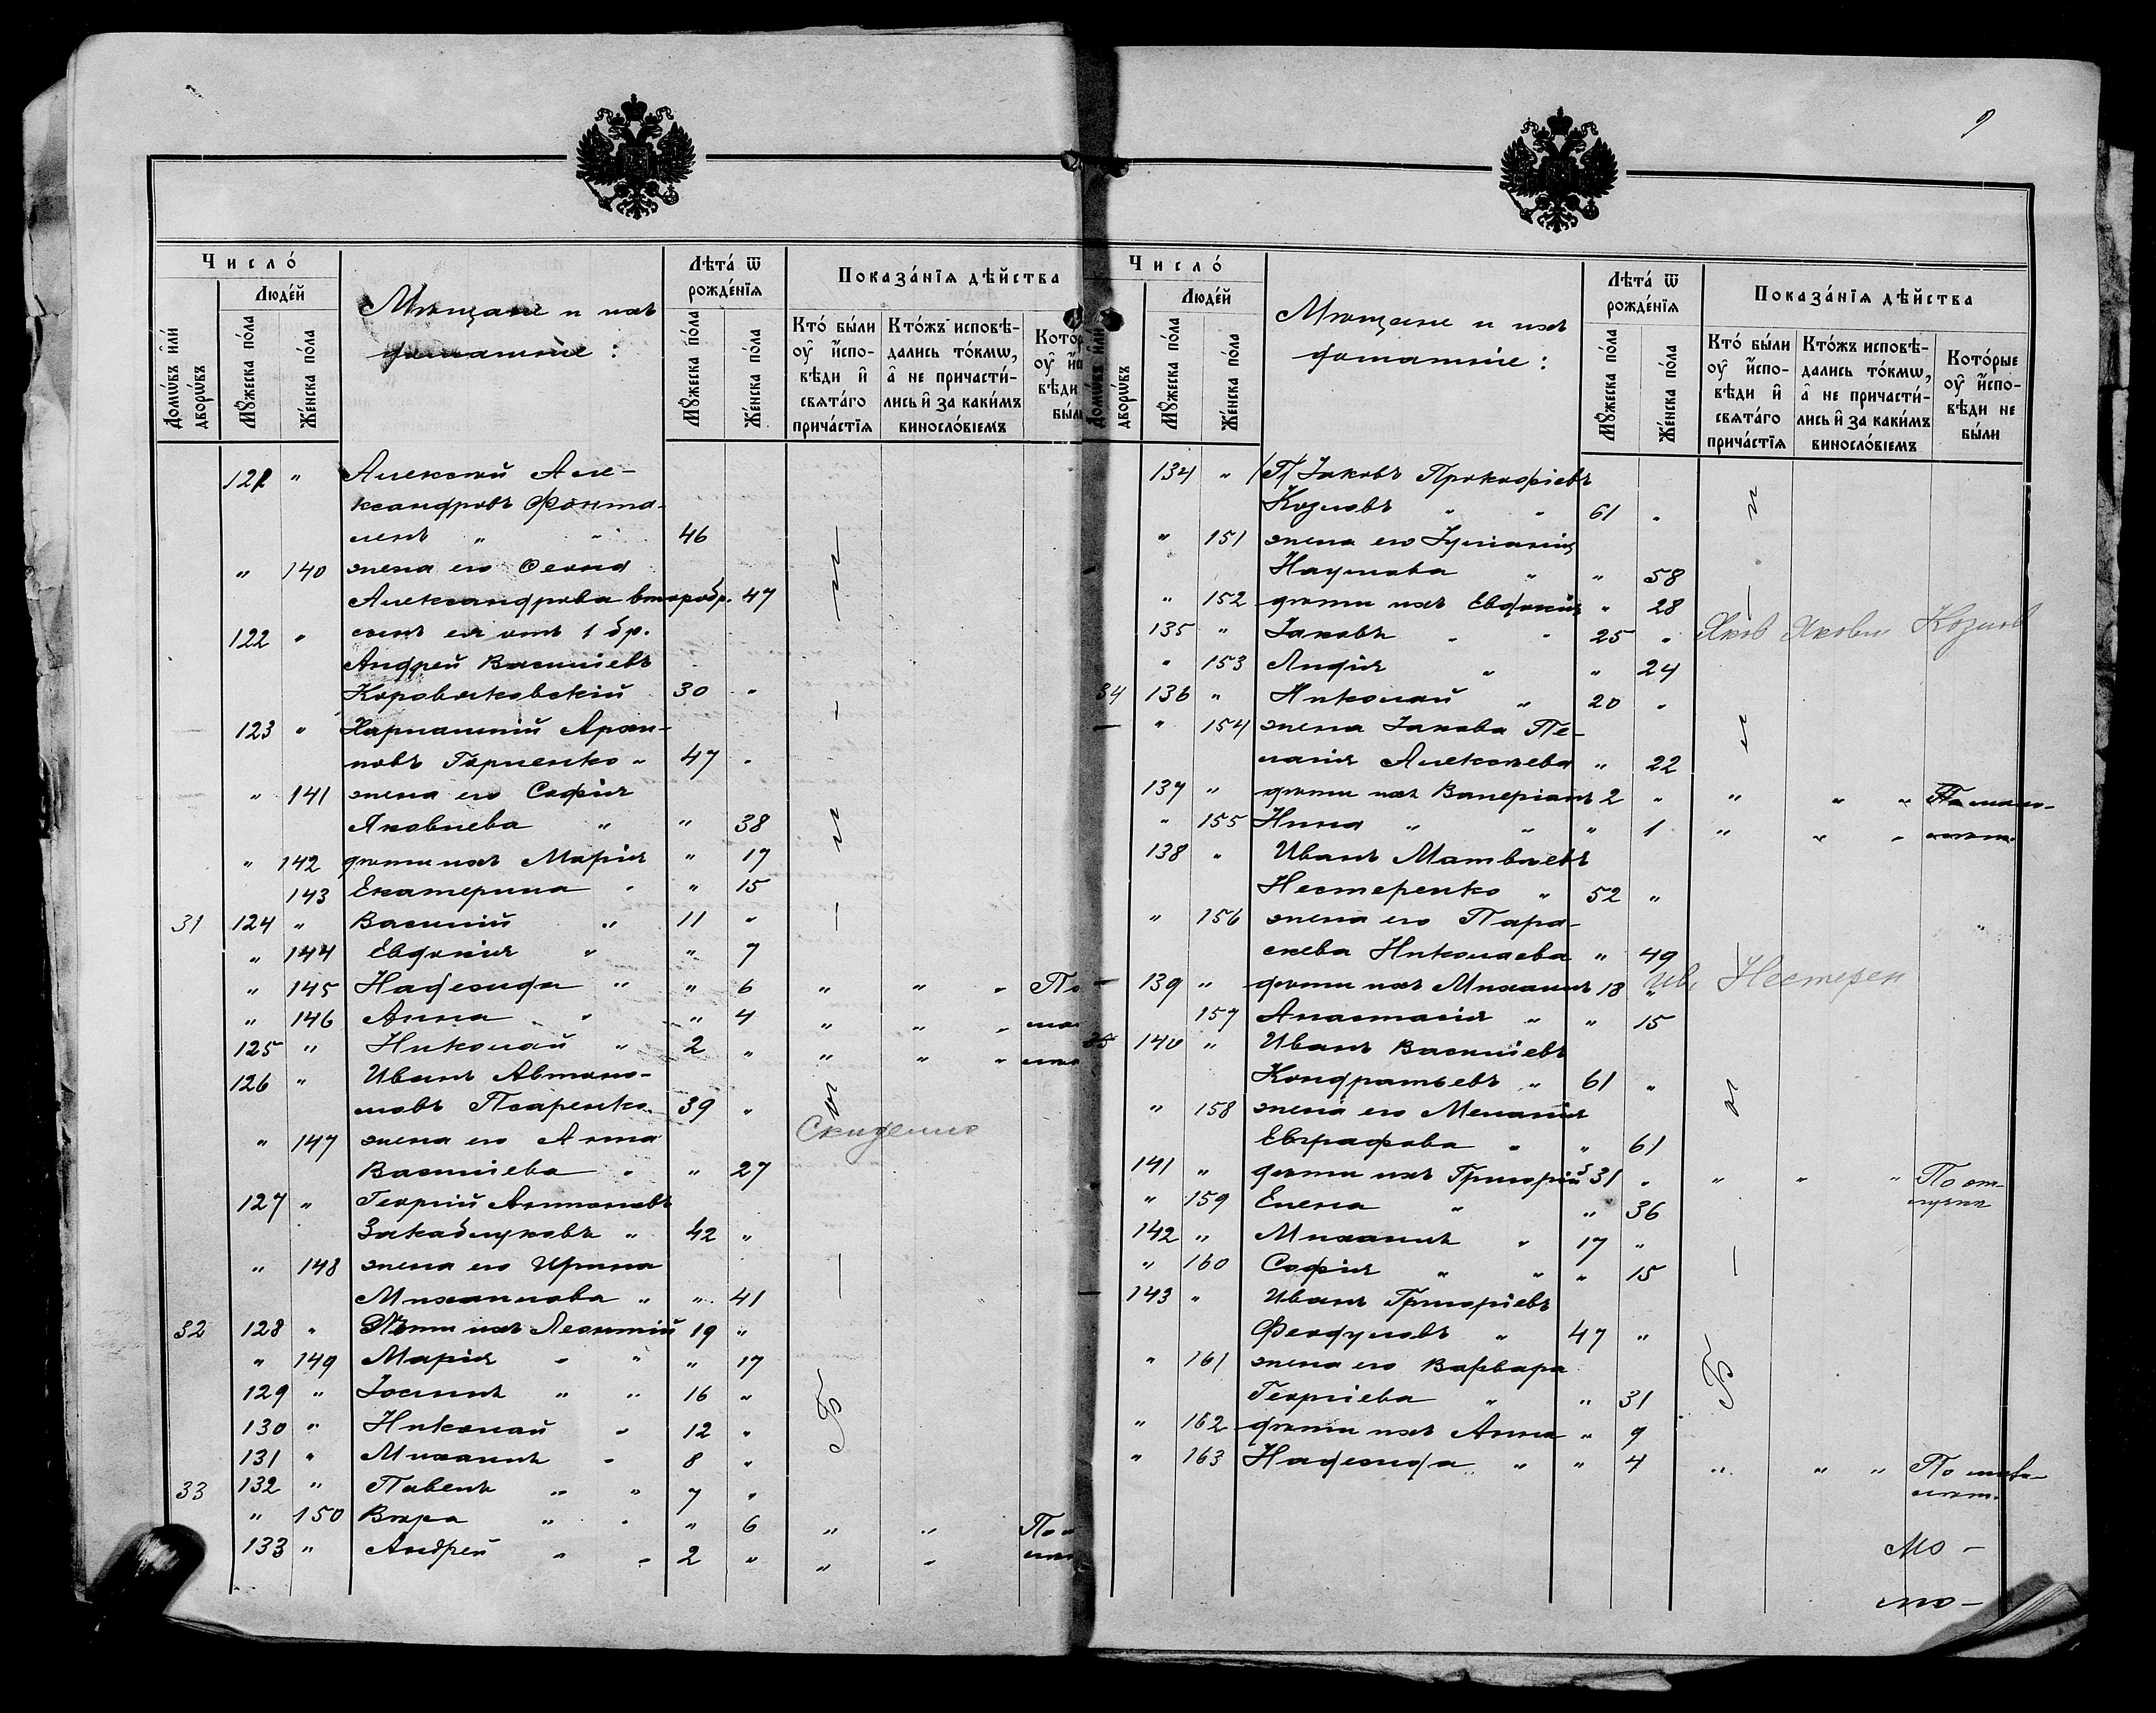 Число́
Людéй
Домѡ́въ и҆лѝ дворѡ́въ
Мꙋжеска по́ла
Же́нска по́ла
Мѣщане и ихъ
домашніе :
Лѣта́ ѿ рожде́нїя
Мꙋжеска по́ла
Же́нска по́ла
Показа́нїя дѣ́йства
Кто̀ бы́ли оу҆ и҆спо-
вѣди и҆ свята́го прича́стїя
Кто́жъ исповѣ-
дались то́кмѡ, а҆ не причасти́-
лись и҆ за каки́мъ виносло́вїемъ
121 " Алексѣй Але-
ксандровъ Фонта-
ленъ " " 46
" 140 жена его Ѳекла
Александрова второбр. 47
122 " сынъ ея отъ 1 бр.
Андрей Васильевъ
Коровяковскій 30 "
123 " Харлампій Архи-
повъ Горленко " 47 "
" 141 жена его Софія
Яковлева " " 38
" 142 дѣти ихъ Марія " 17
143 Екатерина " " 15
31 124 " Василій " 11 "
" 144 Евдокія " " 7
" 145 Надежда " " 6 " " " По
" 146 Анна " " 4 " " " мал
125 " Николай " 2 " " " "
126 " Иванъ Автоно-
мовъ Писаренко 39 "
" 147 жена его Анна
Васильева " " 27
127 " Георгій Антоновъ
Закаблуковъ " 42 "
" 148 жена его Ирина
Михаилова " " 41
32 128 " Дѣти ихъ Леонтій 19 "
" 149 Марія " " " 17
129 " Іосифъ " " 16 "
130 " Николай " 12 "
131 " Михаилъ " 8 "
33 132 " Павелъ " " 7 "
" 150 Вѣра " " " 6 " " По
133 " Андрей " " 2 " " "
9
Число́
Людéй
Домѡ́въ и҆лѝ дворѡ́въ
Мꙋжеска по́ла
Же́нска по́ла
Мѣщане и ихъ
домашніе :
Лѣта́ ѿ рожде́нїя
Мꙋжеска по́ла
Же́нска по́ла
Показа́нїя дѣ́йства
Кто̀ бы́ли оу҆ и҆спо-
вѣди и҆ свята́го прича́стїя
Кто́жъ исповѣ-
дались то́кмѡ, а҆ не причасти́-
лись и҆ за каки́мъ виносло́вїемъ
Кото́рые оу҆ и҆спо-
вѣди не бы́ли
134 " /П/ Іаковъ Прокофіевъ
Козловъ " " 61 "
" 151 жена его Іуліанія
Наумова " " 58
" 152 дѣти ихъ Евдокія " 28
135 " Іаковъ " " 25 " Яков Яковл Козлов
" 153 Лидія " " 24
34 136 " Николай " 20 "
" 154 жена Іакова Пе-
лагія Алексѣева " 22
137 " дѣти ихъ Валеріанъ 2 " " " " По мало-
" 155 Нина " " " 1 " " " лѣтт.
138 " Иванъ Матвѣевъ
Нестеренко " 52 "
" 156 жена его Пара-
скева Николаева " 49
139 " дѣти ихъ Михаилъ 18 " Ив. Нестерен
157 Анастасія " " 15
35 140 " Иванъ Васильевъ
Кондратьевъ " 61 "
" 158 жена его Меланія
Евграфова " " 61
141 " дѣти ихъ Григорій 31 " " " " По от-
лучкѣ
" 159 Елена " " 36
142 " Михаилъ " 17 "
" 160 Софія " " " 15
143 " Иванъ Григоріевъ
Ѳеодуловъ " 47 "
" 161 жена его Варвара
Георгіева " " 31
" 162 дѣти ихъ Анна " 9
" 163 Надежда " " " 4 " " " По мало-
лѣтт.